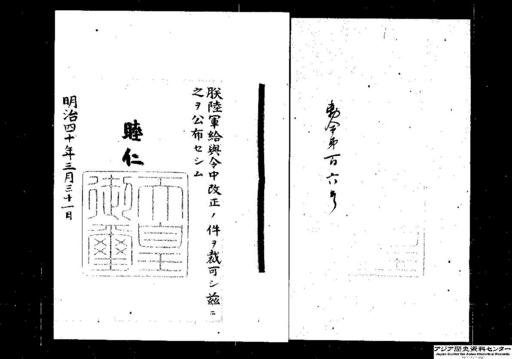 勅令第百六号
朕陸軍給與令中改正ノ件ヲ裁可シ茲ニ
之ヲ公布セシム
睦仁
天皇
御璽
明治四十年三月三十一日
アジア歴史資料センター
Japan Center for Asian Historical Records